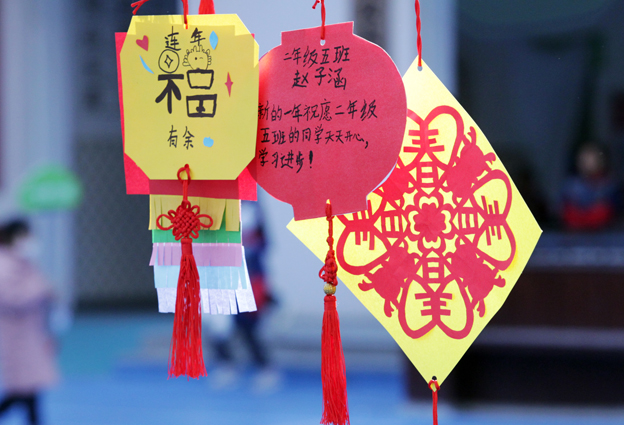 连年
福
有余
二年级五班
赵子涵
新的一年祝愿二年级
五班的同学天天开心,
学习进步!
春
春
春
春